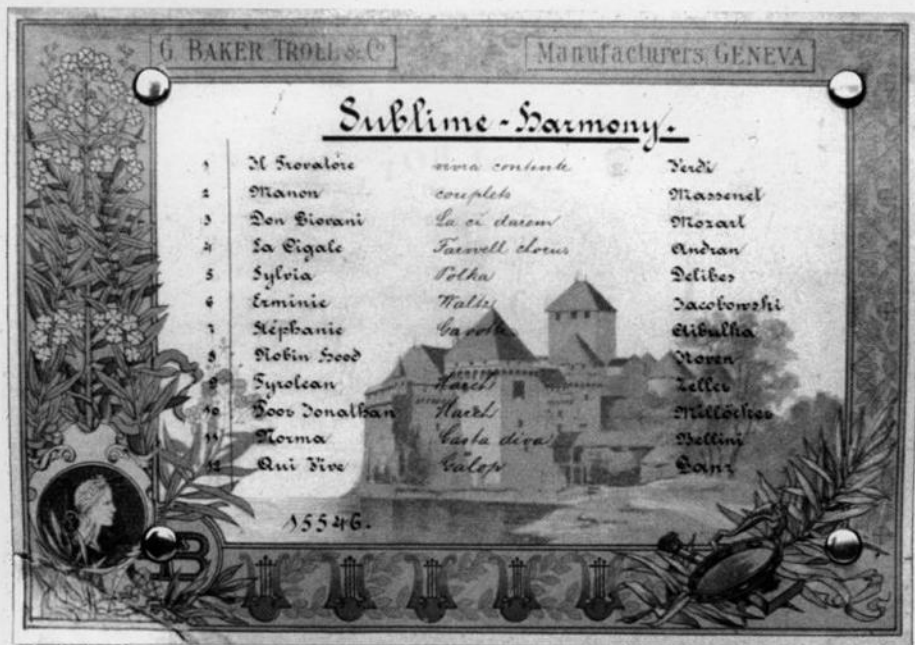 G. BAKER TROLL & Co. Manufacturers GENEVA
Sublime-Harmony.
1 Il Trovatore vivra contente Verdi
2 Manon couplets Massenet
3 Don Giovani La ci darem Mozart
4 La Cigale Farwell chorus Andran
5 Sylvia Polka Delibes
6 Erminie Waltz Jacobowski
7 Stéphanie Gavotte Czibulka
8 Robin Hood Koven
9 Tyrolean March Zeller
10 Poor Jonathan March Millöcker
11 Norma Casta diva Bellini
12 Qui Vive Galop Ganz
15546.
B